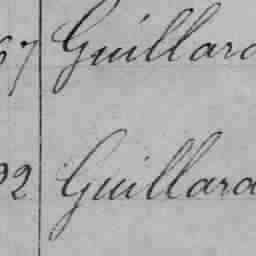 67 Guillard
92 Guillard